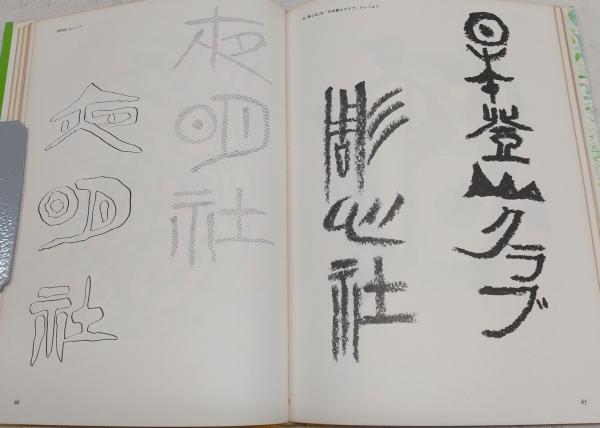 夜明社
夜明社
66
日本登山クラブ
彫心社
67